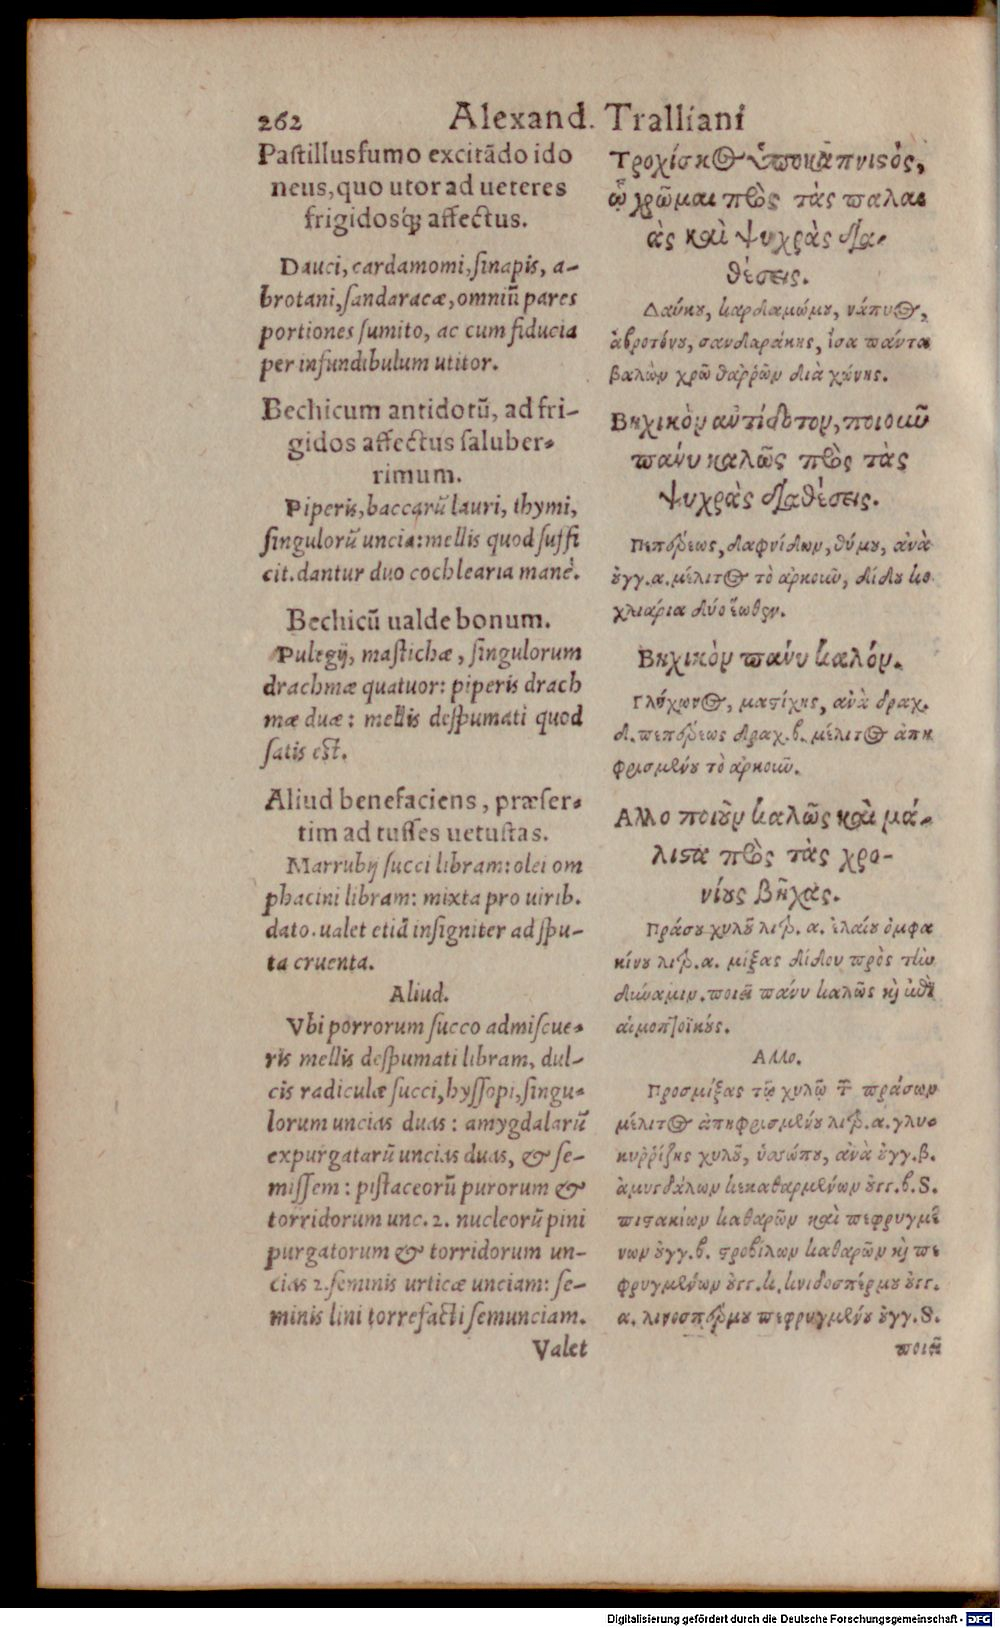 262 Alexand. Tralliani
Pastillus fumo excitādo ido
neus, quo utor ad ueteres
frigidosq́; affectus.
Dauci, cardamomi, sinapis, a-
brotani, sandaracæ, omniū pares
portiones sumito, ac cum fiducia
per infundibulum utitor.
Bechicum antidotū, ad fri-
gidos affectus saluber-
rimum.
Piperis, baccarū lauri, thymi,
singulorū uncia: mellis quod suffi
cit. dantur duo cochlearia manè.
Bechicū ualde bonum.
Pulegij, mastichæ, singulorum
drachmæ quatuor: piperis drach
mæ duæ: mellis despumati quod
satis est.
Aliud benefaciens, præser-
tim ad tusses uetustas.
Marrubij succi libram: olei om
phacini libram: mixta pro uirib.
dato. ualet etiā insigniter ad spu-
ta cruenta.
Aliud.
Vbi porrorum succo admiscue-
ris mellis despumati libram, dul-
cis radiculæ succi, hyssopi, singu-
lorum uncias duas: amygdalarū
expurgatarū uncias duas, & se-
missem: pistaceorū purorum &
torridorum unc. 2. nucleorū pini
purgatorum & torridorum un-
cias 2. seminis urticæ unciam: se-
minis lini torrefacti semunciam.
Valet
Τροχίσκος ὑποκαπνιστός,
ᾧ χρῶμαι πρὸς τὰς παλαι
ὰς καὶ ψυχρὰς δια-
θέσεις.
Δαύκου, καρδαμώμου, νάπυος,
ἀβροτόνου, σανδαράκης, ἴσα πάντα
βαλὼν χρῶ θαῤῥῶν διὰ χώνης.
Βηχικὸν ἀντίδοτον, ποιοῦν
πάνυ καλῶς πρὸς τὰς
ψυχρὰς διαθέσεις.
Πεπέρεως, δαφνίδων, θύμου, ἀνὰ
ουγγ. α. μέλιτος τὸ ἀρκοῦν, δίδου κο
χλιάρια δύο ἕωθεν.
Βηχικὸν πάνυ καλόν.
Γλύχωνος, μαστίχης, ἀνὰ δραχ.
δ. πεπέρεως δραχ. β. μέλιτος ἀπη
φρισμένου τὸ ἀρκοῦν.
Αλλο ποιοῦν καλῶς καὶ μά-
λιστα πρὸς τὰς χρο-
νίους βῆχας.
Πράσου χυλοῦ λιτρ. α. ἐλαίου ὀμφα
κίνου λιτρ. α. μίξας δίδου πρὸς τὴν
δύναμιν. ποιεῖ πάνυ καλῶς καὶ
αἱμοπτοϊκούς.
Αλλο.
Προσμίξας τῷ χυλῷ τῶν πράσων
μέλιτος ἀπηφρισμένου λιτρ. α. γλυο
κυῤῥίζης χυλοῦ, ὑσσώπου, ἀνὰ ουγγ. β.
ἀμυγδάλων κεκαθαρμένων ουγγ. β. S.
πιστακίων καθαρῶν καὶ πεφρυγμέ
νων ουγγ. β. στροβίλων καθαρῶν καὶ πε
φρυγμένων ουγγ. β. κνιδοσπέρμου ουγγ.
α. λινοσπέρμου πεφρυγμένου ουγγ. S.
ποιεῖ
Digitalisierung gefördert durch die Deutsche Forschungsgemeinschaft - DFG